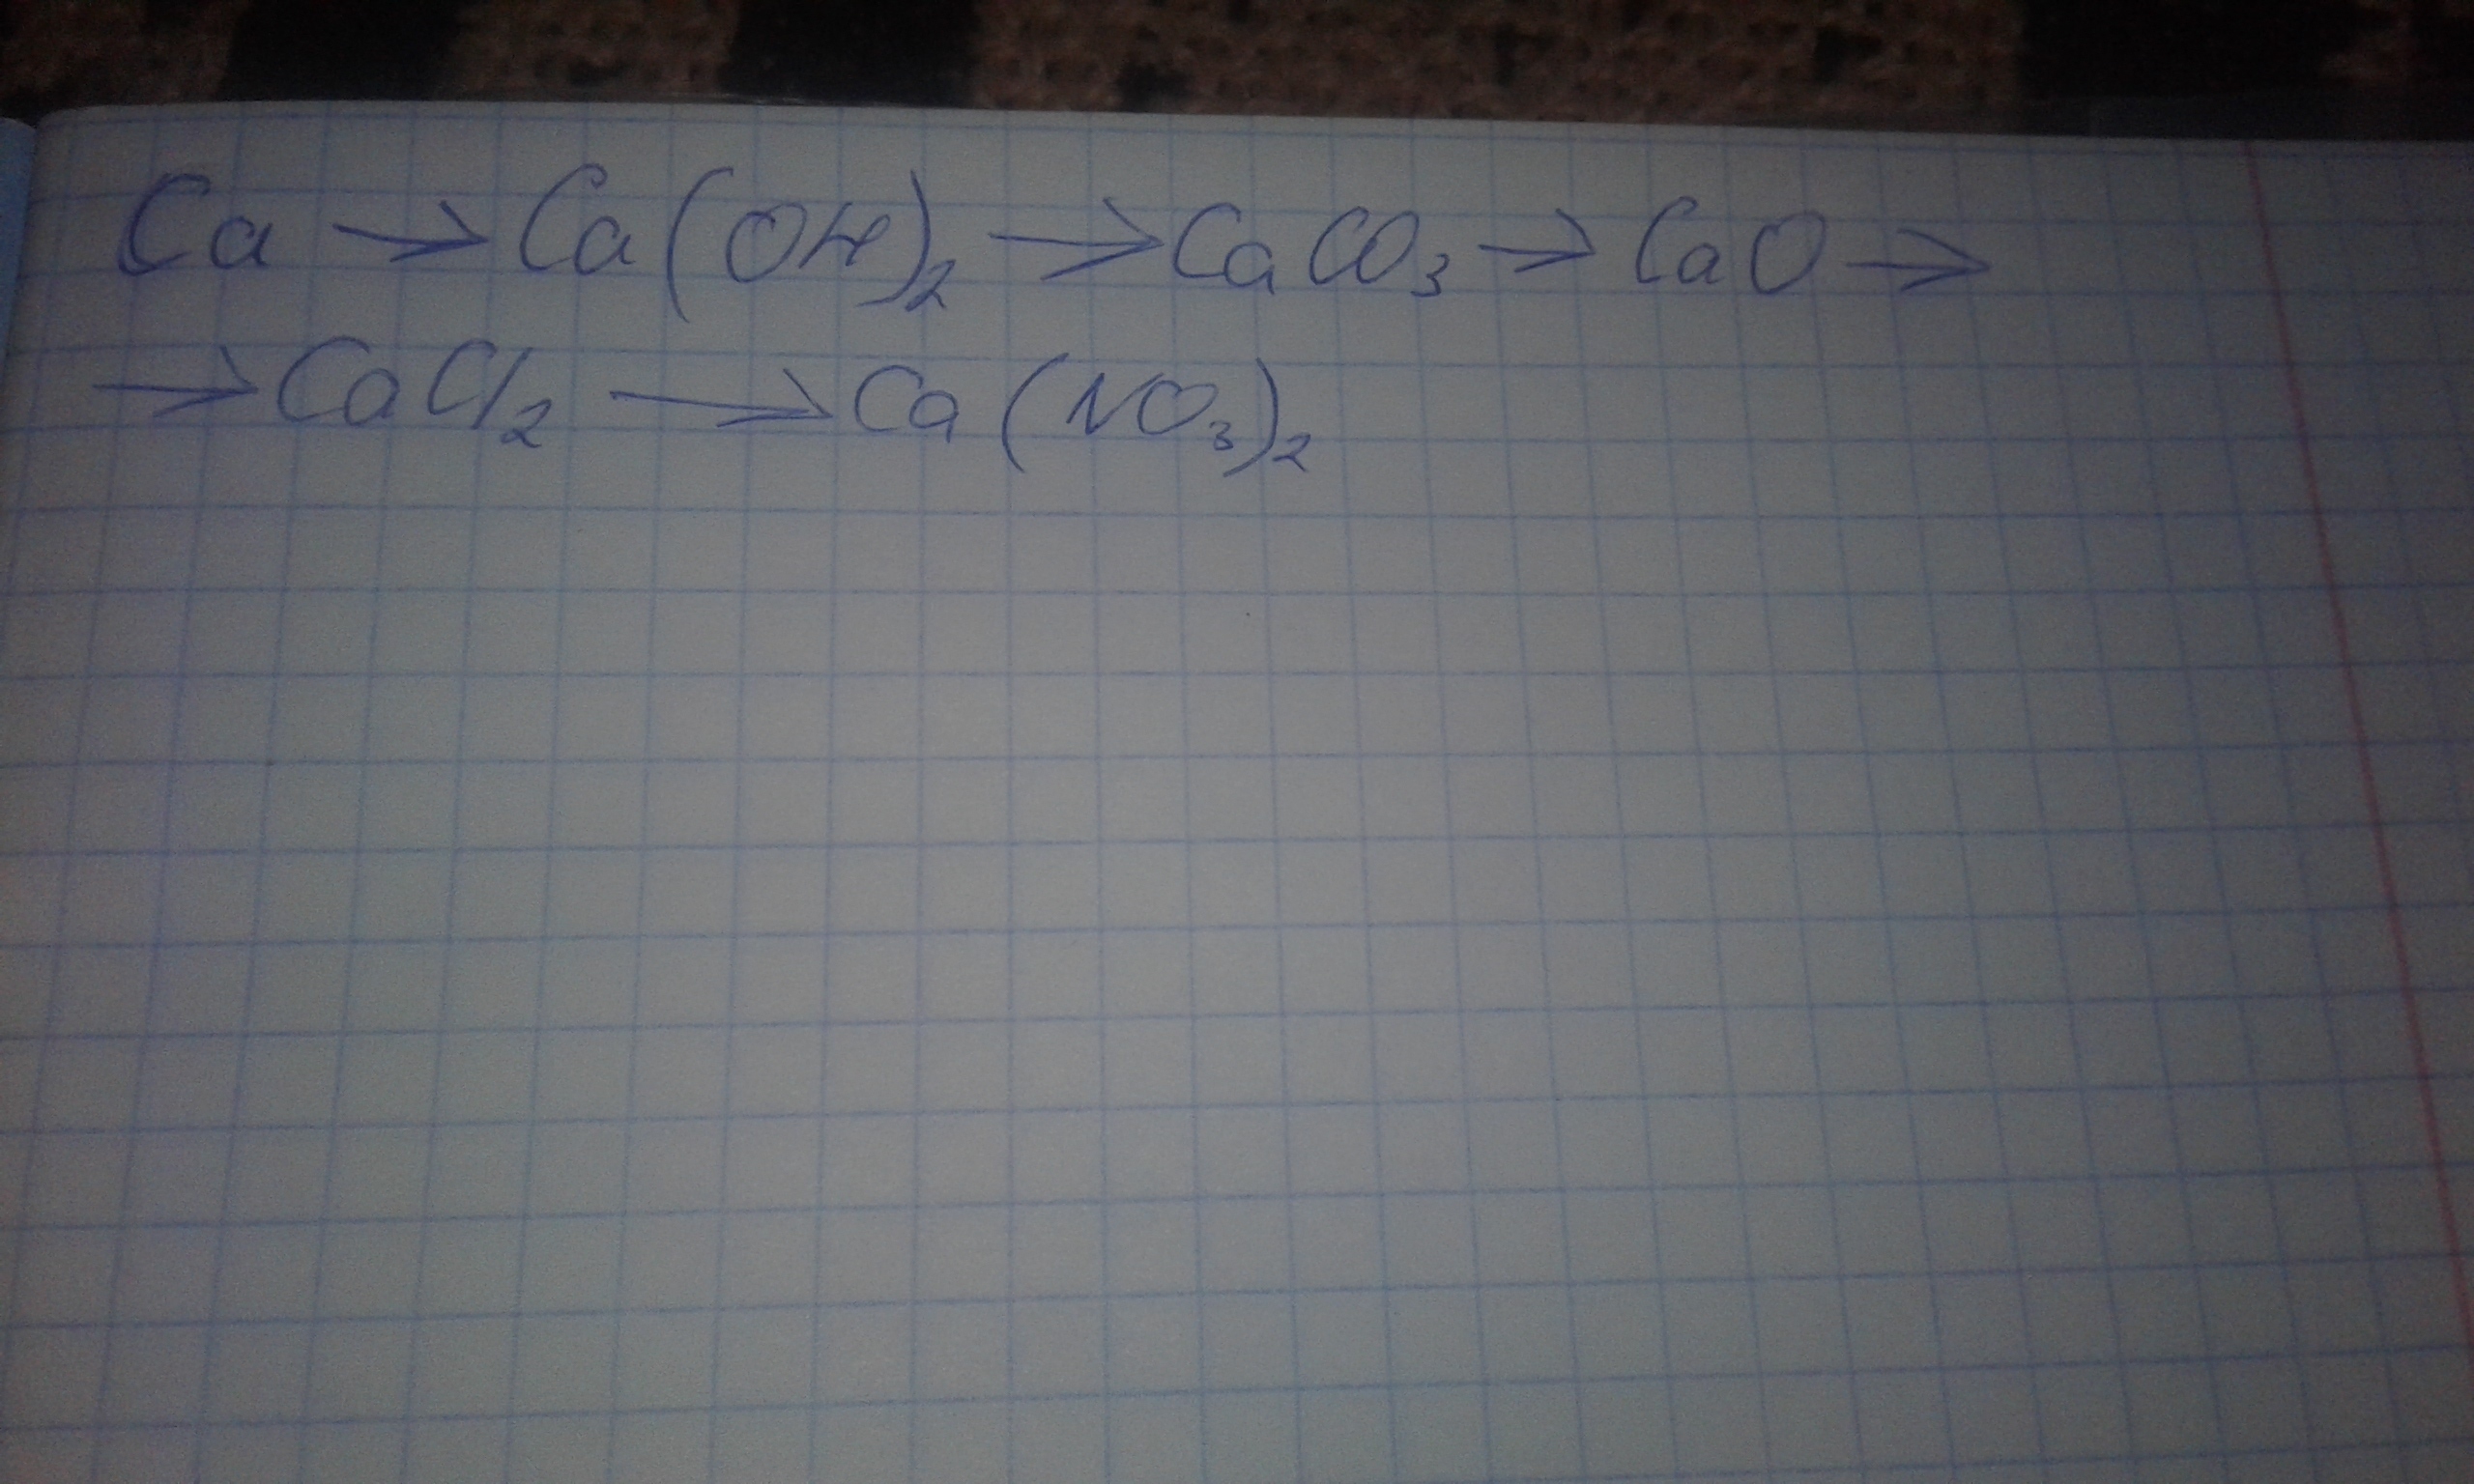 Ca → Ca(OH)₂ → CaCO₃ → CaO →
→ CaCl₂ → Ca(NO₃)₂